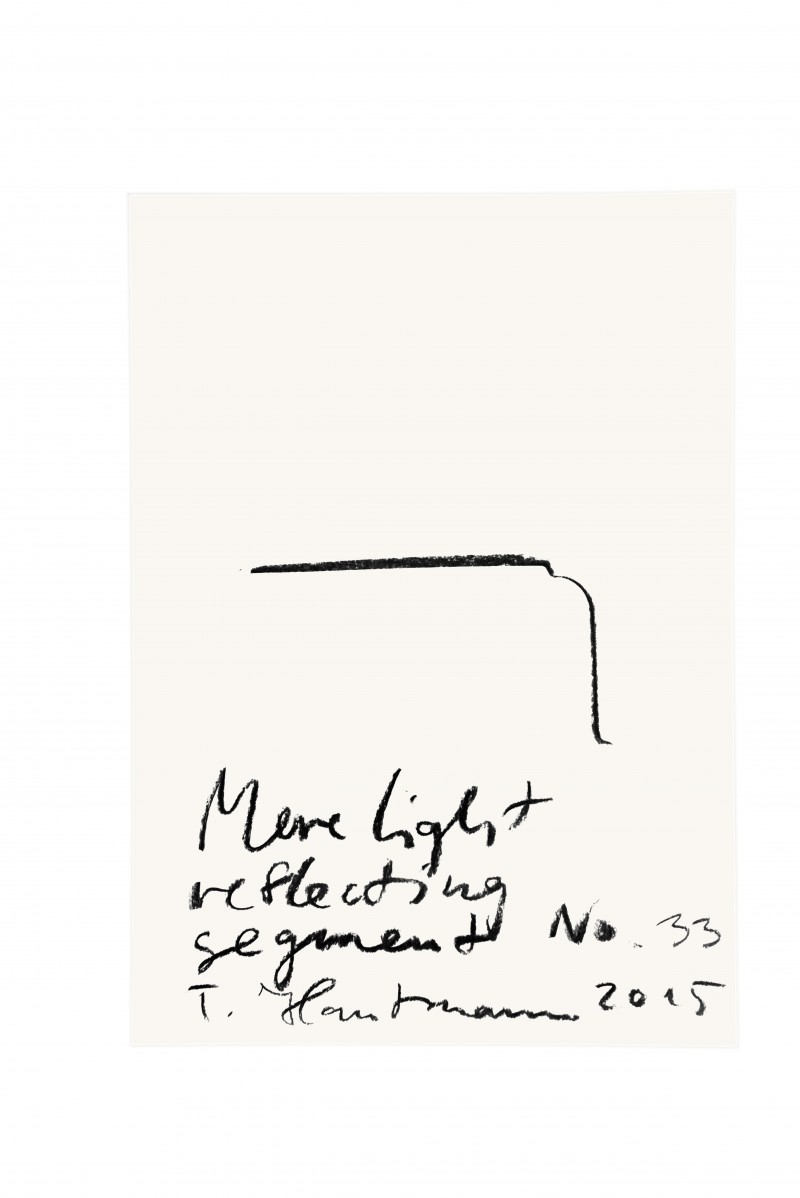 Mere light
reflecting
segment No. 33
T. 2015